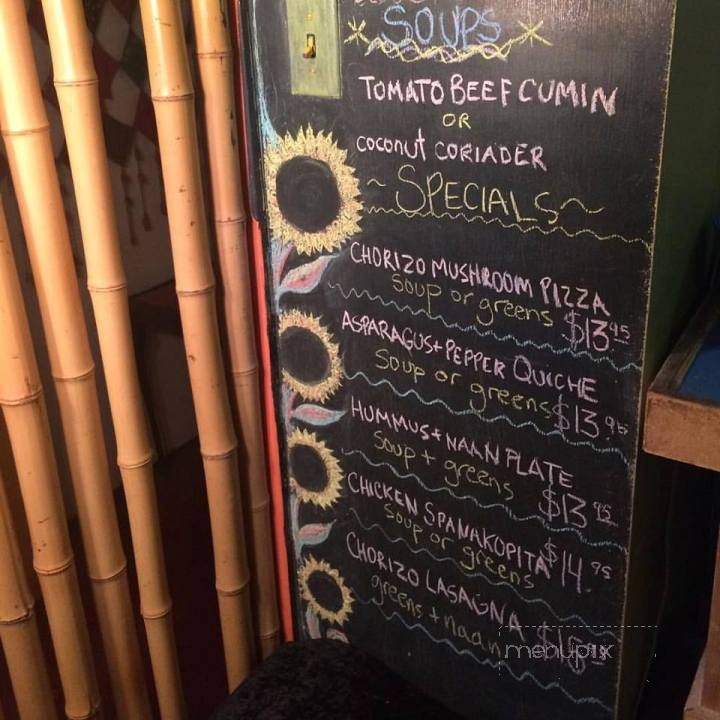 SOUPS
TOMATO BEEF CUMIN
OR
coconut CORIADER
~SPECIALS~
CHORIZO MUSHROOM PIZZA
soup or greens $13.95
ASPARAGUS+PEPPER QUICHE
soup or greens $13.95
HUMMUS+NAAN PLATE
soup + greens $13.95
CHICKEN SPANAKOPITA
soup or greens $14.95
CHORIZO LASAGNA
greens + naan
menupix